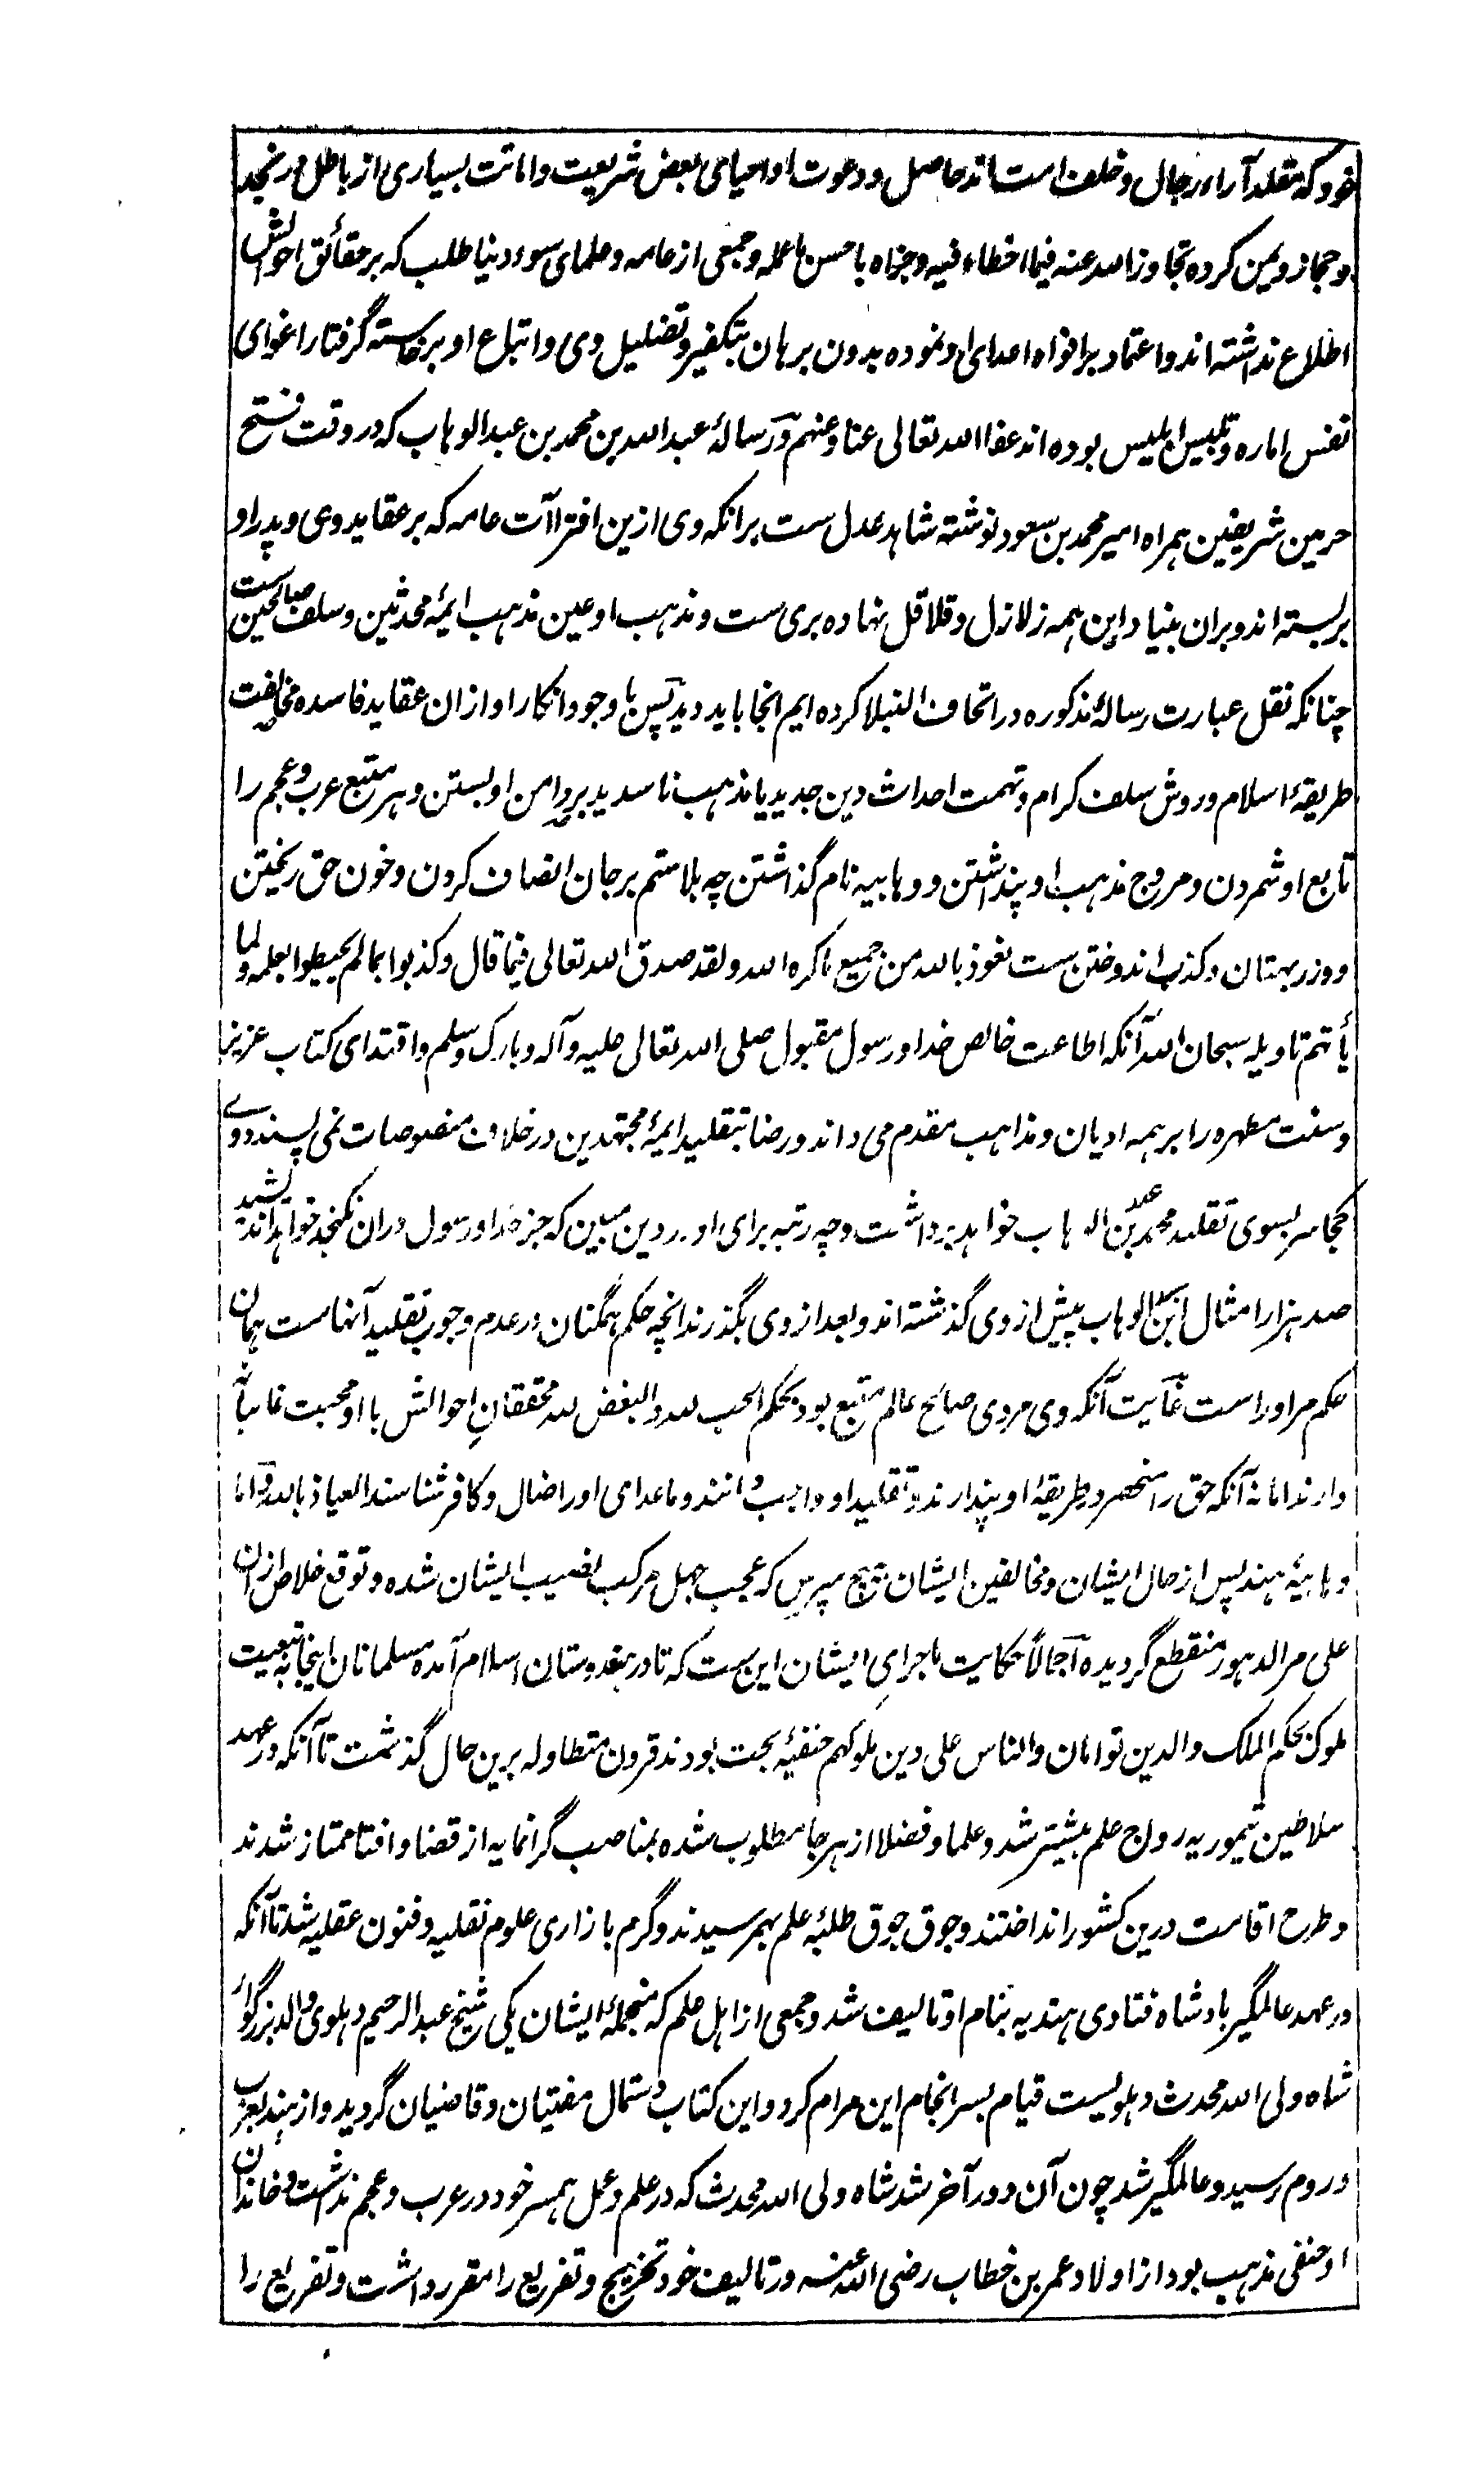 خود که مقلد آراء رجال و خلف است اند حاصل و دعوت او احیای بعض شریعت و اماتت بسیاری از باطل در نجد
و حجاز و یمن کرده تجاوز الله عنه فیما اخطاء فیه و جزاه باحسن ما عمله و جمعی از عامه و علمای سوء دنیا طلب که بر حقائق احوالش
اطلاع نداشته اند و اعتماد بر افواه اعدای او نموده بدون برهان بتکفیر و تضلیل وی و اتباع او برخاسته گرفتار اغوای
نفس اماره و تلبیس ابلیس بوده اند عفا الله تعالی عنا و عنهم و رسالهٔ عبد الله بن محمد بن عبد الوهاب که در وقت فتح
حرمین شریفین همراه امیر محمد بن سعود نوشته شاهد عدل ست برانکه وی ازین افتراآت عامه که بر عقاید وی و پدر او
بربسته اند و بران بنیاد این همه زلازل و قلاقل نهاده بری ست و مذهب او عین مذهب ایمهٔ محدثین و سلف صالحین ست
چنانکه نقل عبارت رسالهٔ مذکوره در اتحاف النبلا کرده ایم انجا باید دید پس با وجود انکار او ازان عقاید فاسده مخالفت
طریقهٔ اسلام و روش سلف کرام و تهمت احداث دین جدید یا مذهب ناسدید بر دامن او بستن و هر متبع عرب و عجم را
تابع او شمردن و مروج مذهب او پنداشتن و وهابیه نام گذاشتن چه بلا ستم بر جان انصاف کردن و خون حق ریختن
و وزر بهتان و کذب اندوختن ست نعوذ بالله من جمیع ما کره الله و لقد صدق الله تعالی فیما قال و کذبوا بما لم یحیطوا بعلمه و لما
یأتهم تاویله سبحان الله آنکه اطاعت خالص خدا و رسول مقبول صلی الله تعالی علیه و آله و بارک وسلم و اقتدای کتاب عزیز
و سنت مطهره را بر همه ادیان و مذاهب مقدم می داند و رضا بتقلید ایمهٔ مجتهدین در خلاف منصوصات نمی پسندد وے
کجا سر بسوی تقلید محمد بن عبد الوهاب خواهد برداشت و چه رتبه برای او در دین مبین که جز خدا و رسول دران نگنجد خواهد اندیشید
صد هزار امثال ابن عبد الوهاب پیش از وی گذشته اند و بعد از وی بگذرند انچه حکم همگنان در عدم وجوب تقلید آنهاست همان
حکم مر او راست غایت آنکه وی مردی صالح عالم متبع بود بحکم الحب لله و البغض لله محققانِ احوالش با او محبت غائبانه
دارند اما نه آنکه حق را منحصر در طریقهٔ او پندارند و تقلید او واجب دانند و ماعدای او را ضال و کافر شناسند العیاذ بالله و اما
وهابیهٔ هند پس از حال ایشان و مخالفین ایشان هیچ مپرس که عجب جهل مرکب نصیب ایشان شده و توقع خلاص ازان
علی مر الدهور منقطع گردیده اجمالاً حکایت ماجرای ایشان این ست که تا در هندوستان اسلام آمده مسلمانان اینجا به تبعیت
ملوک بحکم الملک و الدین توامان و الناس علی دین ملوکهم حنفیهٔ بحت بودند قرون متطاوله برین حال گذشت تا آنکه در عهد
سلاطین تیموریه رواج علم بیشتر شد و علما و فضلا از هر جا مطلوب شده بمناصب گرانمایه از قضا و افتا ممتاز شدند
و طرح اقامت درین کشور انداختند و جوق جوق طلبهٔ علم بهم رسیدند و گرم بازاری علوم نقلیه و فنون عقلیه شد تا آنکه
در عهد عالمگیر بادشاه فتاوی هندیه بنام او تالیف شد و جمعی از اهل علم که منجملهٔ ایشان یکی شیخ عبد الرحیم دهلوی والد بزرگوار
شاه ولی الله محدث دهلویست قیام بسرانجام این مرام کرد و این کتاب دستمال مفتیان و قاضیان گردید و از هند بعرب
و روم رسید و عالمگیر شد چون آن دور آخر شد شاه ولی الله محدث که در علم و عمل همسر خود در عرب و عجم نداشت و خاندان
او حنفی مذهب بود از اولاد عمر بن خطاب رضی الله عنه در تالیف خود تخریج و تفریع را مقرر داشت و تفریع را